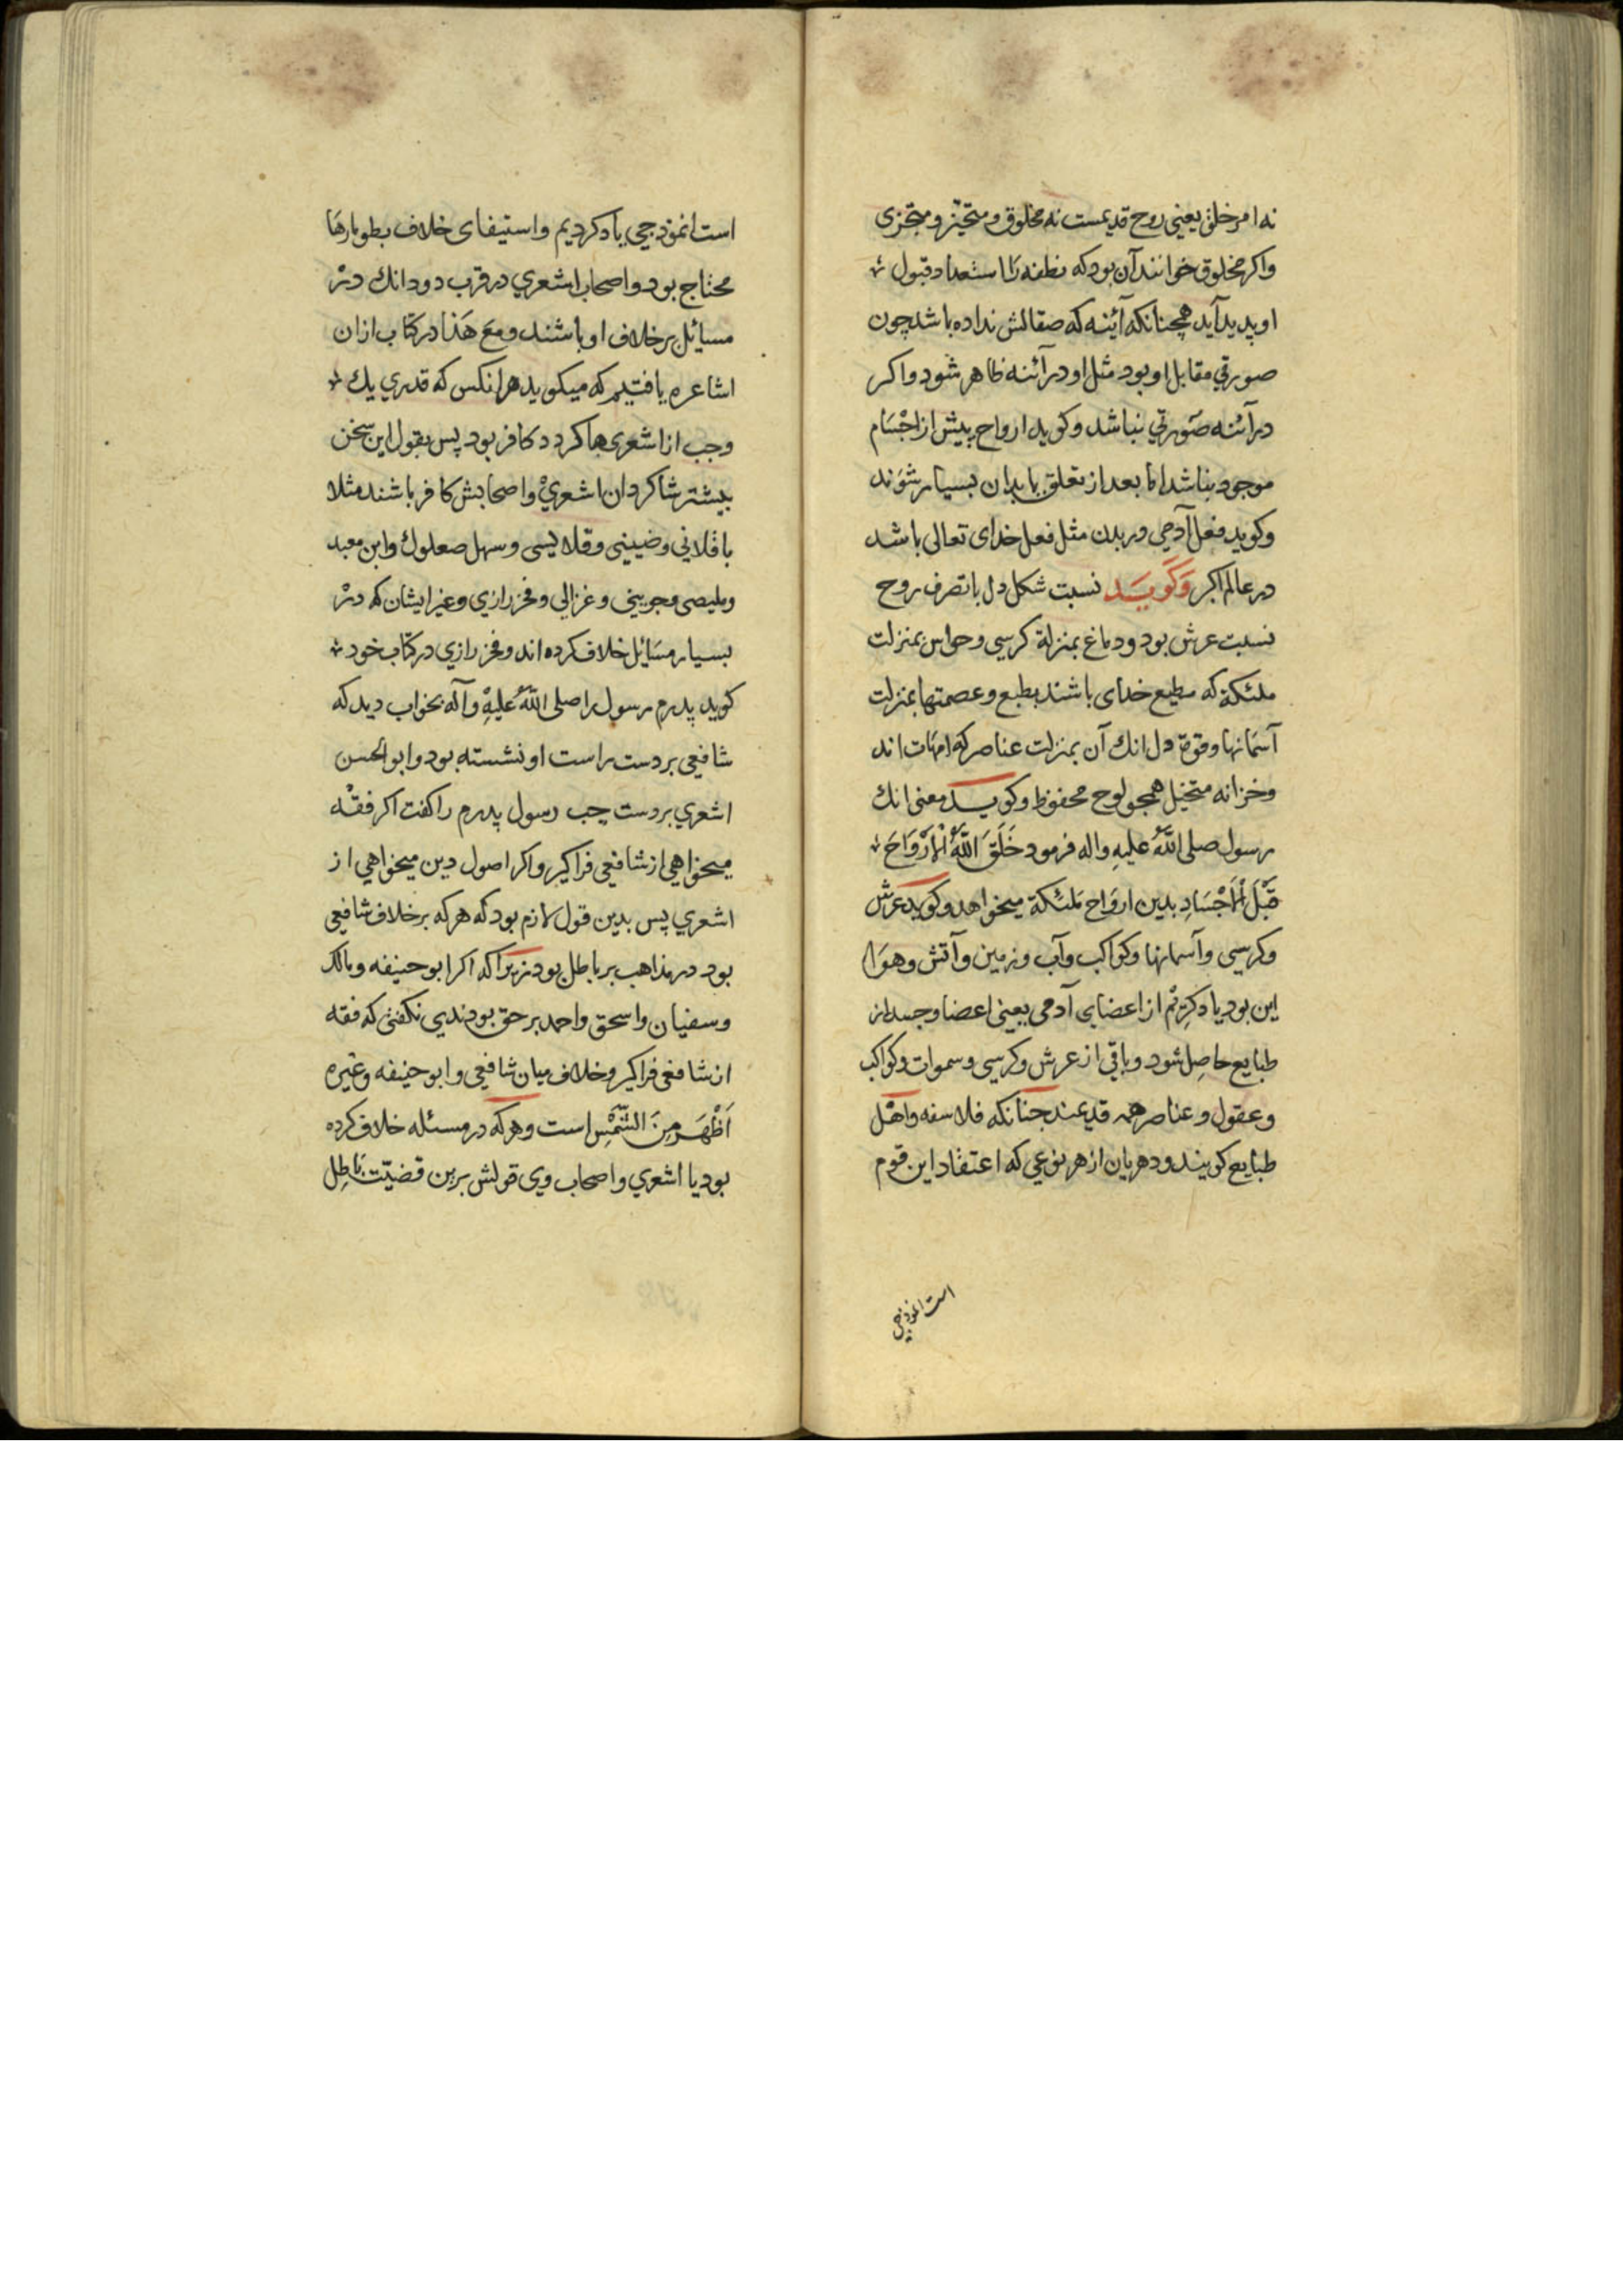 نه امر خلق یعنی روح قدیمست نه مخلوق و متحیز و متجزی
واکر مخلوق خوانند آن بود که نطفه را استعداد قبول
او پدید آید همچنانکه آئینه که صقالش نداده باشد چون
صورتی مقابل او بود مثل او در آئنه ظاهر شود واکر
در آئنه صورتی نباشد وکوید ارواح پیش از اجْسَام
موجود نباشد اما بعد از تعلق بابدان بسیار شوَند
وکوید فعل آدمی در بدن مثل فعل خدای تعالی باشد
در عالم اکبر وَکَویَد نسبت شکل دل باتصرف روح
نسبت عرش بود ودماغ بمنزلة کرسی وحواس بمنزلت
ملئکة که مطیع خدای باشند بطبع وعصمتها بمنزلت
آسمانها وقوة دل انك آن بمنزلت عناصر که امهات اند
وخزانه متخیل همجو لوح محفوظ وکویـد معنی انك
رسول صلی اللّهُ علیهِ واله فرمود خَلَقَ اللّهُ الْاَرْوَاحَ
قَبْلَ الْاَجْسَادِ بدین ارواح ملئکة میخواهد وکوید عرش
وکرسی وآسمانها وکواکب وآب وزمین وآتش وهوَا
این بود یاد کرتم از اعضای آدمی یعنی اعضا وجسد از
طبایع حاصِل شود وباقی از عرش وکرسی وسموات وکواکب
وعقول وعناصر همه قدیمند جنانکه فلاسفه واهْل
طبایع کویند ودهریان از هر نوعی که اعتقاد این قوم
است انموذجی
است انموذجی یاد کردیم واستیفای خلاف بطومارها
محتاج بود واصحاب اشعری در قرب دو دانك درْ
مسایٔل بر خلاف او باشند ومع هَذا در کتاب ازان
اشاعره یافتیم که میکوید هر انکس که قدری یك
وجب از اشعری ها کردد کافر بود پس بقول این سخن
بیشتر شاکردان اشعریْ واصحابش کافر باشند مثلا
باقلانی وضبینی وقلایسی وسهل صعلوك وابن معبد
وملیصی وجوینی وغزالی وفخر رازی وغیر ایشان که درْ
بسیار مسَایٔل خلاف کرده اند وفخر رازی در کتاب خود
کوید پدرم رسول را صلی اللّهُ علیْهِ وآله بخواب دید که
شافعی بر دست راست او نشسته بود وابو الحسن
اشعری بر دست چب رسول پدرم را کفت اکر فقْه
میخواهی از شافعی فراکیر واکر اصول دین میخواهی از
اشعری پس بدین قول لازم بود که هر که بر خلاف شافعی
بود در مذاهب بر باطل بود زیرَا که اکر ابو حنیفه ومالك
وسفیان واسحق واحمد بر حق بودندی نکفتی که فقه
از شافعی فراکیر وخلاف میان شافعی وابو حنیفه وغیره
اَظْهَر مِنَ الشّمْسِ است وهر که در مسئله خلاف کرده
بود یا اشعری واصحاب وی قولش برین قضیّت بَاطِل